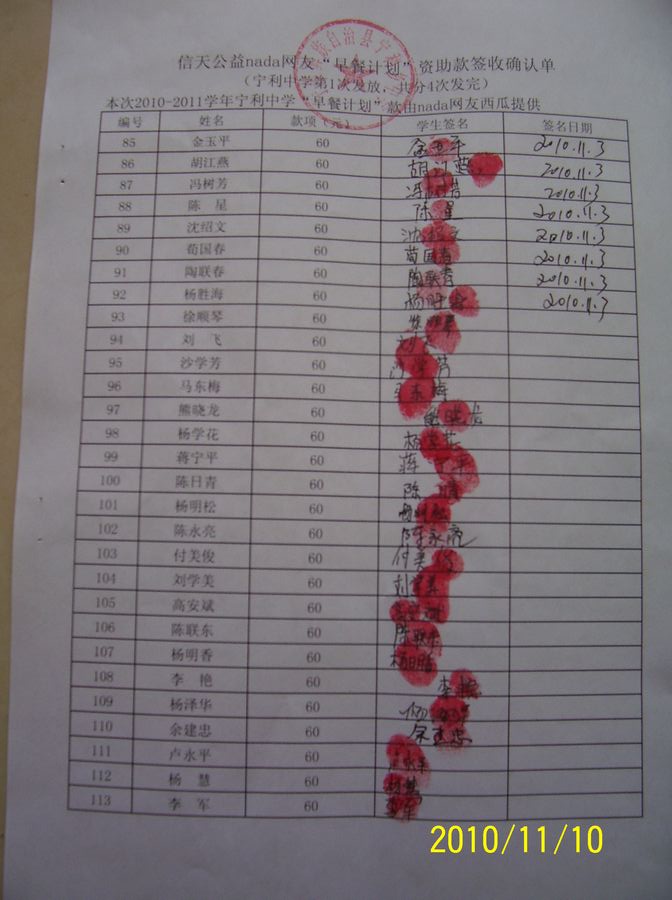 信天公益nada网友“早餐计划”资助款签收确认单
(宁利中学第1次发放，共分4次发完)
本次2010-2011学年宁利中学“早餐计划”款由nada网友西瓜提供
族自治县宁
编号 姓名 款项(元) 学生签名 签名日期
85 金玉平 60 金玉平 2010.11.3
86 胡江燕 60 胡江燕 2010.11.3
87 冯树芳 60 冯树芳 2010.11.3
88 陈 星 60 陈星 2010.11.3
89 沈绍文 60 沈绍文 2010.11.3
90 荀国春 60 荀国春 2010.11.3
91 陶联春 60 陶联春 2010.11.3
92 杨胜海 60 杨胜海 2010.11.3
93 徐顺琴 60
94 刘 飞 60 刘飞
95 沙学芳 60 沙学芳
96 马东梅 60 马东梅
97 熊晓龙 60 熊晓龙
98 杨学花 60 杨学花
99 蒋宁平 60 蒋宁平
100 陈日青 60 陈
101 杨明松 60
102 陈永亮 60 陈永亮
103 付美俊 60 付美俊
104 刘学美 60 刘学美
105 高安斌 60 高安斌
106 陈联东 60 陈联东
107 杨明香 60
108 李 艳 60 李艳
109 杨泽华 60
110 余建忠 60 余建忠
111 卢永平 60 卢永平
112 杨 慧 60 杨慧
113 李 军 60 李军
2010/11/10